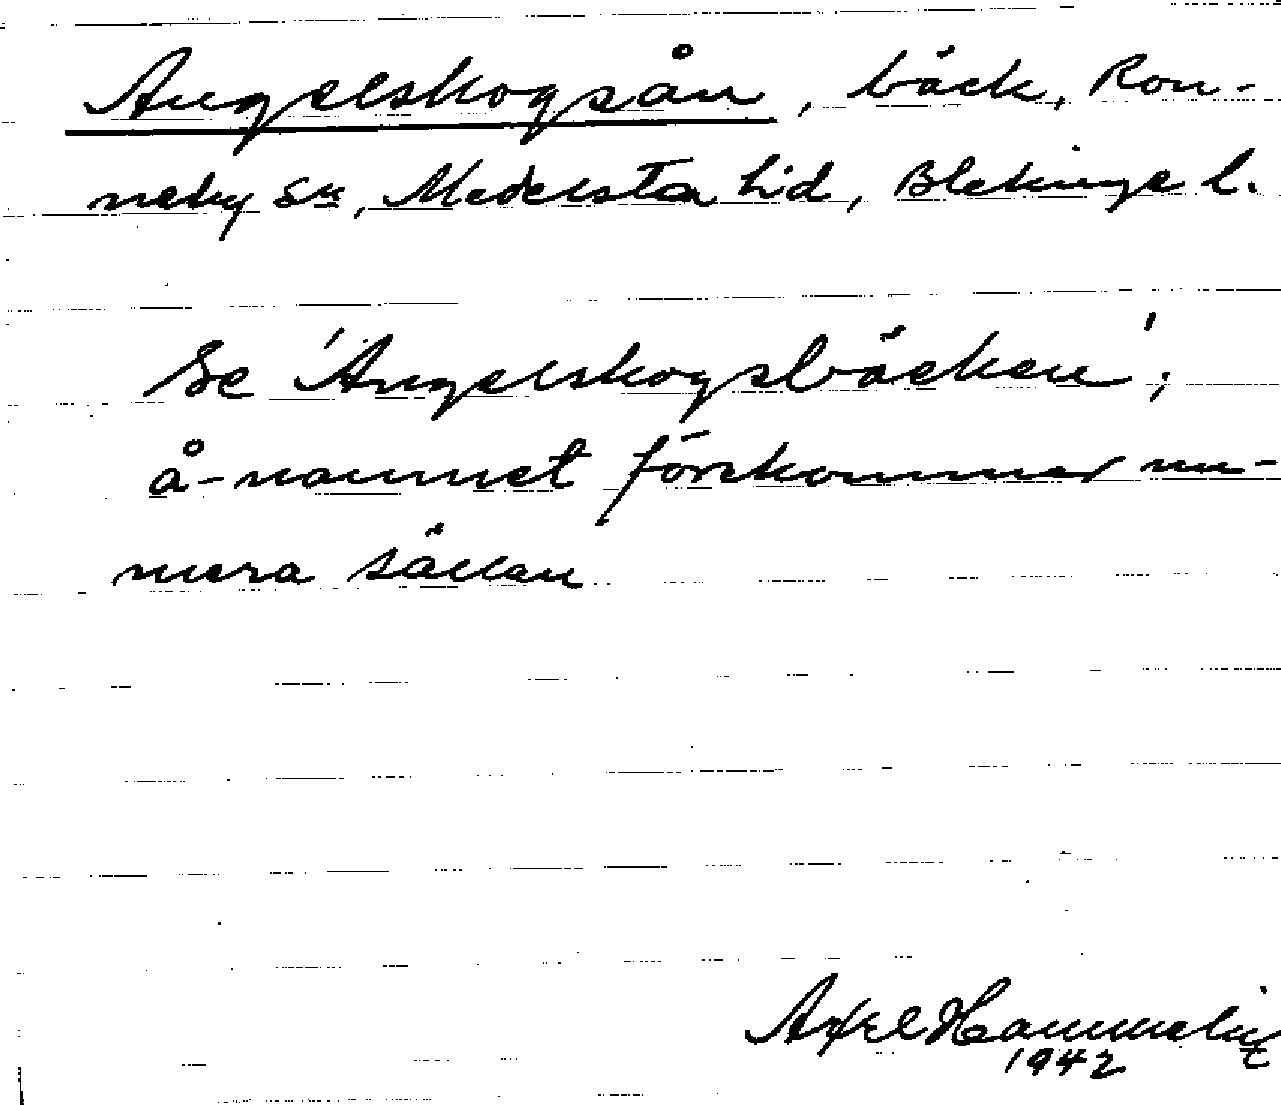 Angelskogsån, bäck, Ron-
neby sn, Medelsta hd, Blekinge l.
Se 'Angelskogsbäcken';
å-namnet förekommer nu-
mera sällan
Axel Hammelin
1942